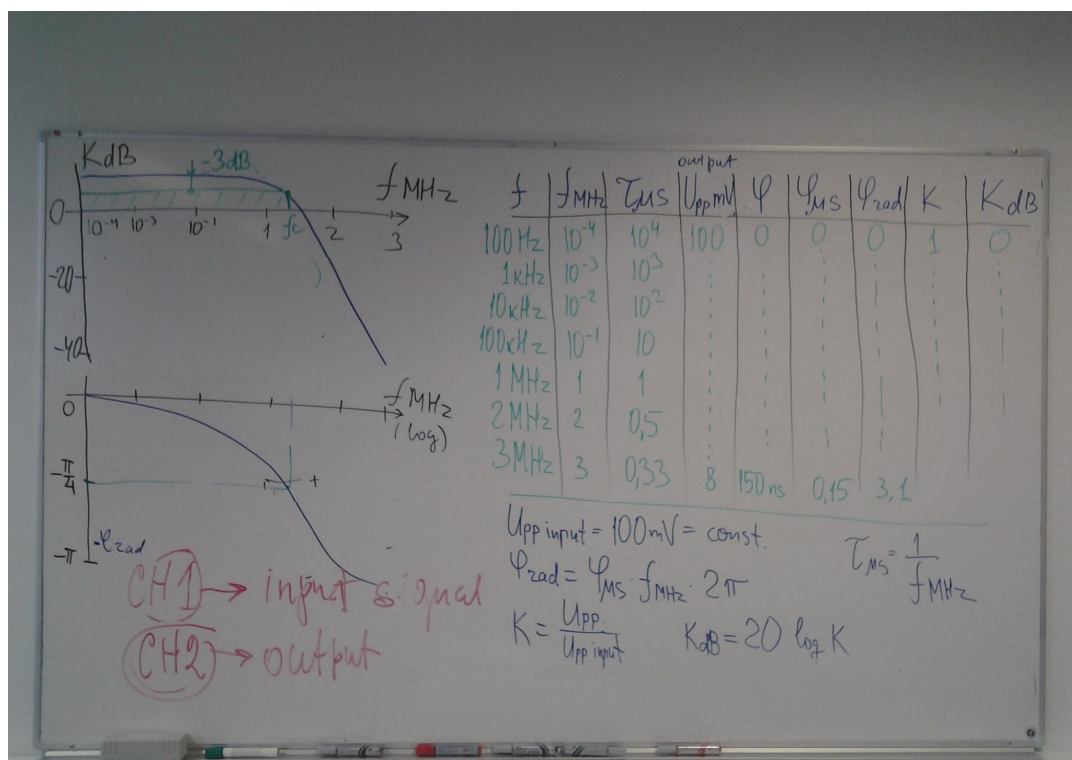 KdB
-3dB
f MHz
0
10⁻⁴ 10⁻³ 10⁻¹ 1 fc 2 3
-20
-40
f MHz
(log)
0
-π/4
-π
-φ rad
CH1 → input signal
CH2 → output
output
f fMHz τμs UppmV φ φμs φrad K KdB
100Hz 10⁻⁴ 10⁴ 100 0 0 0 1 0
1кHz 10⁻³ 10³
10кHz 10⁻² 10²
100кHz 10⁻¹ 10
1 MHz 1 1
2MHz 2 0,5
3MHz 3 0,33 8 150ns 0,15 3,1
Upp input = 100mV = const.
φrad = φμs · fMHz · 2π
τμs = 1/fMHz
K = Upp/Upp input KdB = 20 log K